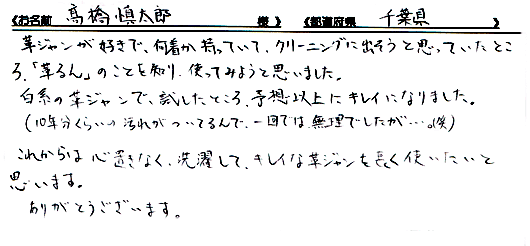 《お名前 高橋慎太郎 様》《都道府県 千葉県 》
革ジャンが好きで、何着か持っていて、クリーニングに出そうと思っていたとこ
ろ、「革るん」のことを知り、使ってみようと思いました。
白系の革ジャンで、試したところ、予想以上にキレイになりました。
(10年分くらいの汚れがついてるんで、一回では無理でしたが…。(笑)
これからは心置きなく、洗濯して、キレイな革ジャンを長く使いたいと
思います。
ありがとうございます。